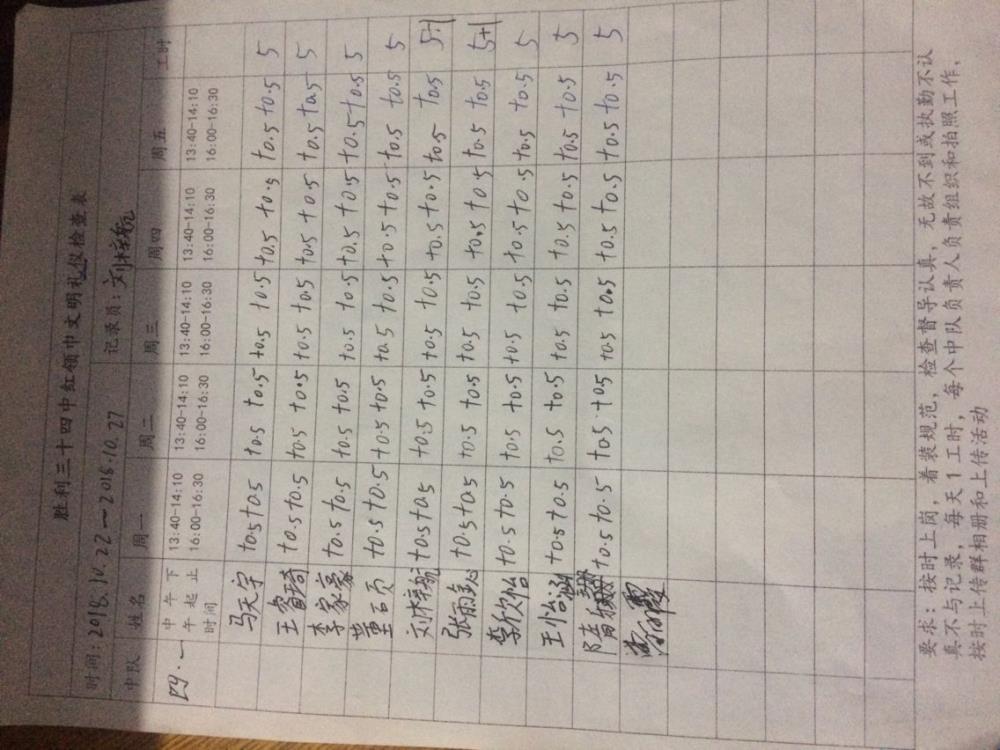 胜利三十四中红领巾文明礼仪检查表
时间：2018.10.22—2018.10.27 记录员：刘梓航
中队 姓名 周一 周二 周三 周四 周五 工时
四·一 中午下午起止时间 13:40-14:10 16:00-16:30 13:40-14:10 16:00-16:30 13:40-14:10 16:00-16:30 13:40-14:10 16:00-16:30 13:40-14:10 16:00-16:30
马天宇 +0.5 +0.5 +0.5 +0.5 +0.5 +0.5 +0.5 +0.5 +0.5 +0.5 5
王睿琦 +0.5 +0.5 +0.5 +0.5 +0.5 +0.5 +0.5 +0.5 +0.5 +0.5 5
李家豪 +0.5 +0.5 +0.5 +0.5 +0.5 +0.5 +0.5 +0.5 +0.5 +0.5 5
董 +0.5 +0.5 +0.5 +0.5 +0.5 +0.5 +0.5 +0.5 +0.5 +0.5 5
刘梓航 +0.5 +0.5 +0.5 +0.5 +0.5 +0.5 +0.5 +0.5 +0.5 +0.5 5+1
张雨 +0.5 +0.5 +0.5 +0.5 +0.5 +0.5 +0.5 +0.5 +0.5 +0.5 5+1
李欣怡 +0.5 +0.5 +0.5 +0.5 +0.5 +0.5 +0.5 +0.5 +0.5 +0.5 5
王怡涵 +0.5 +0.5 +0.5 +0.5 +0.5 +0.5 +0.5 +0.5 +0.5 +0.5 5
隋 +0.5 +0.5 +0.5 +0.5 +0.5 +0.5 +0.5 +0.5 +0.5 +0.5 5
要求：按时上岗，着装规范，检查督导认真，无故不到或执勤不认
真不与记录，每天1工时，每个中队负责人负责组织和拍照工作，
按时上传群相册和上传活动